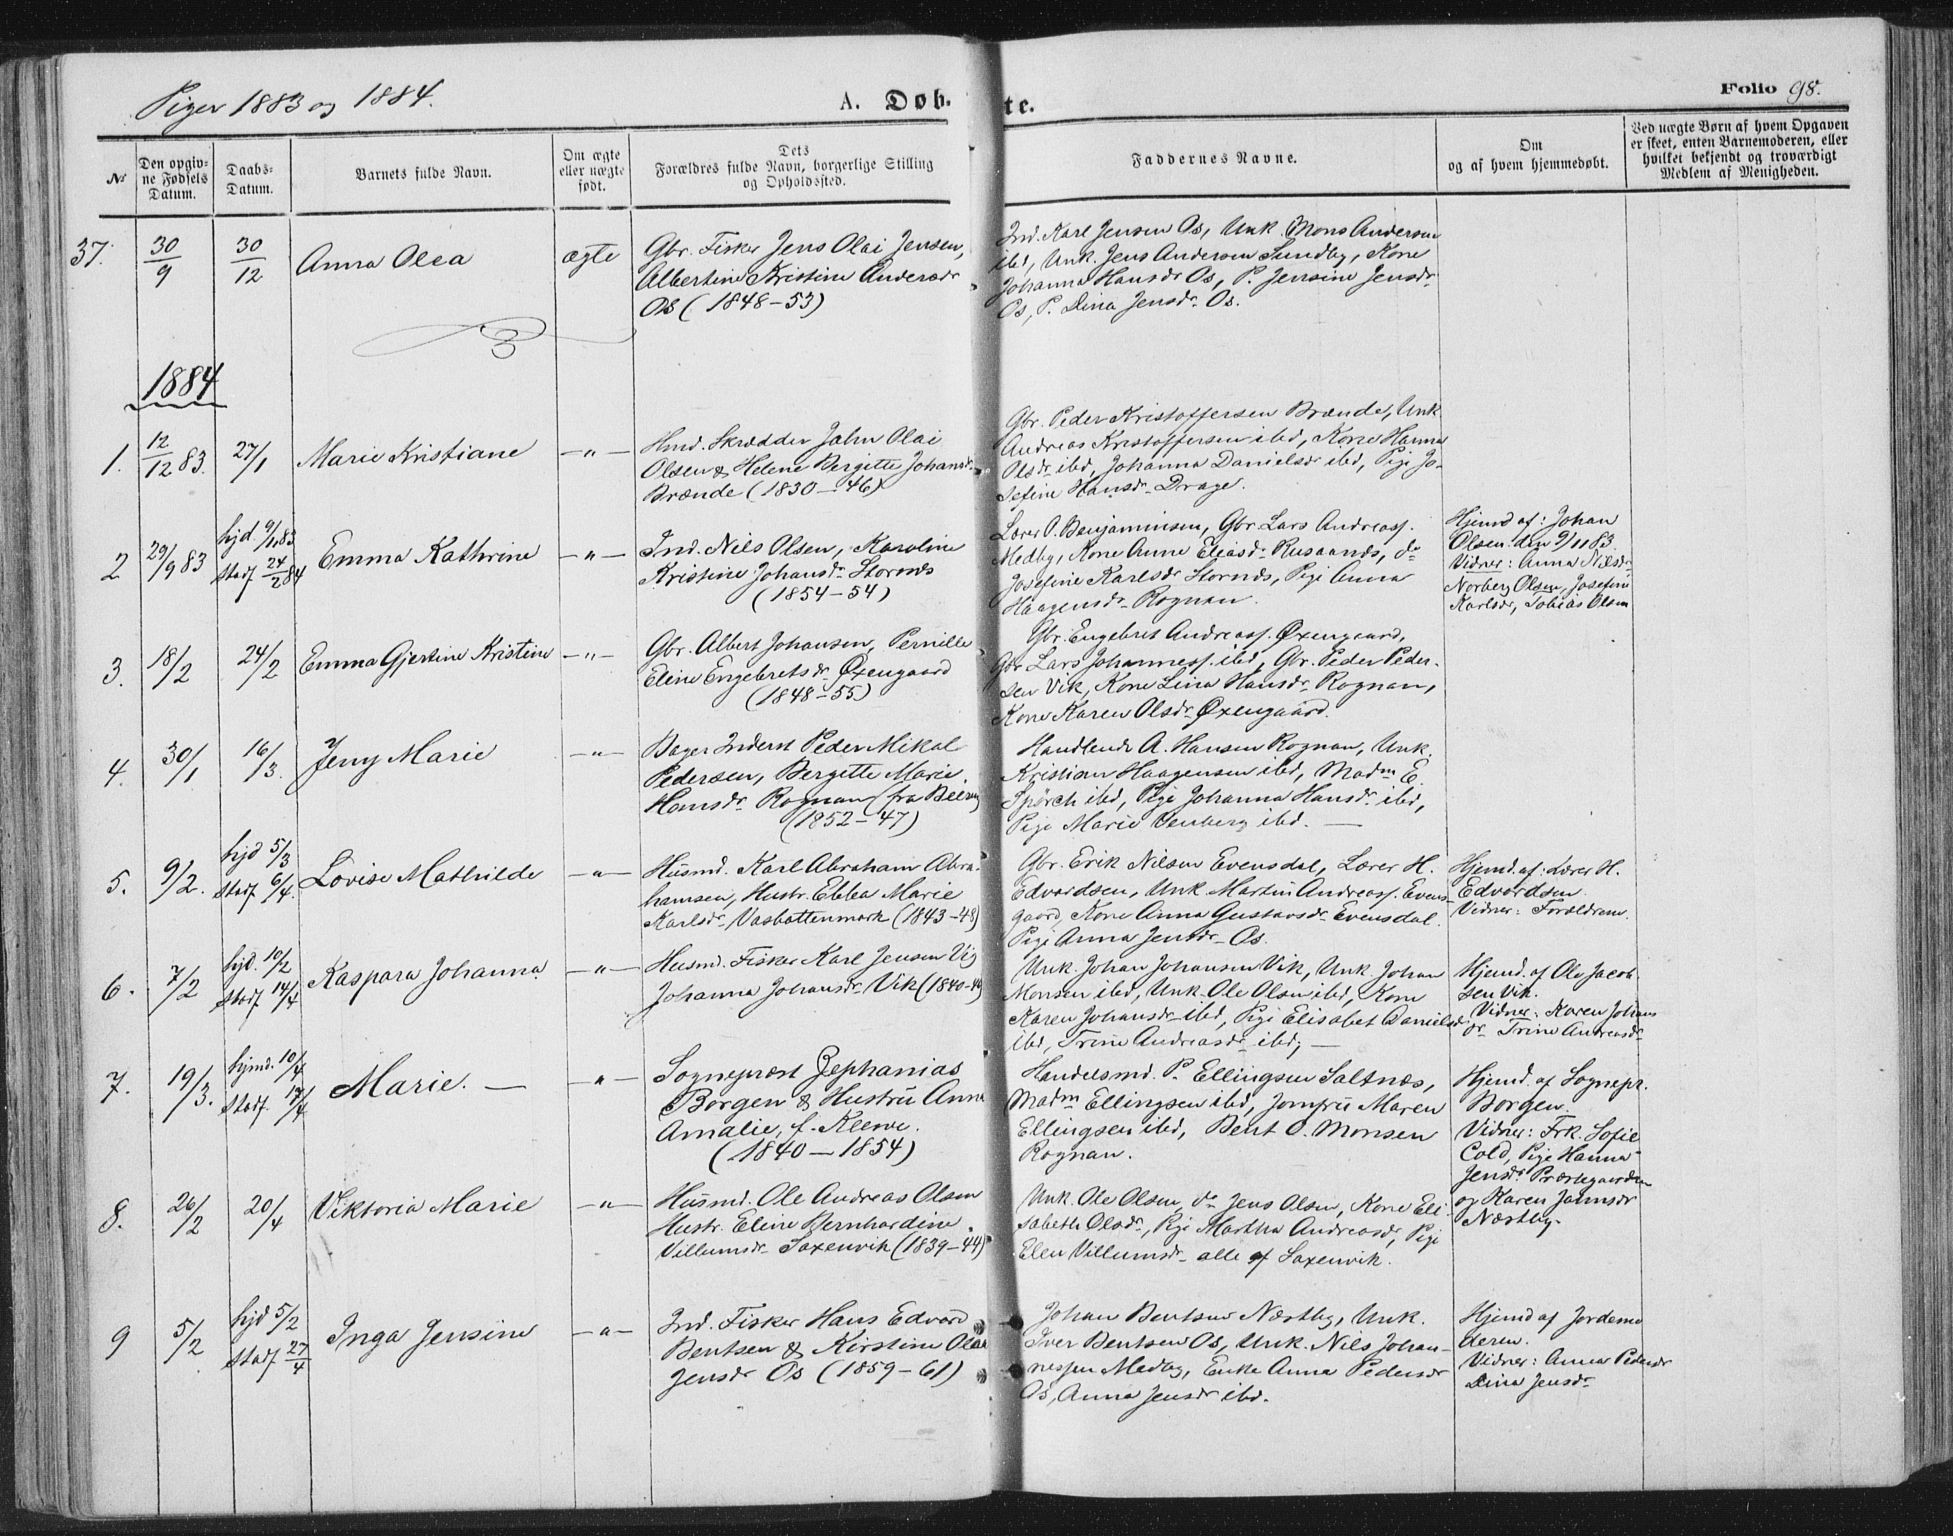 Piger 1883 og 1884.
A. Døb- te.
Folio 98.
No
Den opgiv-
ne Fødsels
Datum.
Daabs-
Datum.
Barnets fulde Navn.
Om ægte
eller uægte
født.
Dets
Forældres fulde Navn, borgerlige Stilling
og Opholdssted.
Faddernes Navne.
Om
og af hvem hjemmedøbt.
Ved uægte Børn af hvem Opgaven
er skeet, enten Barnemoderen, eller
hvilket bekjendt og troværdigt
Medlem af Menigheden.
37. 30/9 30/12 Anna Olea ægte
Gbr. Fisker Jens Olai Jensen,
Albertine Kristine Andersdr
Os (1848-53)
Ind. Karl Jensen Os, Unk. Mons Andersen
ibd, Unk. Jens Andersen Sundby, Kone
Johanna Hansdr Os, P. Jensine Jensdr
Os, P. Dina Jensdr. Os.
1884
1. 12/12 83. 27/1 Marie Kristiane -"-
Hmd. Skrædder Jahn Olai
Olsen & Helene Bergitte Johansdr
Brænde (1830-46)
Gbr. Peder Kristoffersen Brænde, Unk.
Andreas Kristoffersen ibd, Kone Hanna
Olsdr ibd, Johanna Danielsdr ibd, Pige Jo-
sefine Hansdr Drage.
2 29/9 83 hjd. 9/11 83 stadf 24/2 84 Emma Kathrine -"-
Ind. Nils Olsen, Karoline
Kristine Johansdr Stornæs
(1854-54)
Lærer O. Benjaminsen, Gbr. Lars Andreass.
Medby, Kone Anne Eliasdr Rusaanes, do
Josefine Karlsdr Stornæs, Pige Anna
Haagensdr Rognan.
Hjemd af: Johan
Olsen den 9/11 83.
Vidner: Anna Nilsdr
Norberg Olsen, Josefine
Karlsdr, Tobias Olsen
3. 18/2 24/2 Emma Gjertine Kristine -"-
Gbr. Albert Johansen, Pernille
Eline Engebretsdr Øxengaard
(1848-55)
Gbr. Engebret Andreass. Øxengaard,
Gbr Lars Johanness. ibd, Gbr. Peder Peder-
sen Vik, Kone Lina Hansdr Rognan,
Kone Karen Olsdr Øxengaard.
4. 30/1 16/3. Jeny Marie -"-
Bager Inderst Peder Mikal
Pedersen, Bergitte Marie
Hansdr Rognan (fra
(1852-47)
Handlende A. Hansen Rognan, Unk.
Kristian Haagensen ibd, Madm E.
Spörck ibd, Pige Johanna Hansdr ibd,
Pige Marie ibd. -
5. 9/2. hjd 5/3 stadf 6/4. Lovise Mathilde -"-
Husmd. Karl Abraham Abra-
hamsen, Hustr. Ebba Marie
Karlsdr Vasbottenmark (1843-48)
Gbr. Erik Nilsen Evensdal, Lærer H.
Edvardsen, Unk. Martin Andreass. Evens-
gaard, Kone Anna Gustavsdr Evensdal.
Pige Anna Jensdr Os.
Hjemd. af: Lærer H.
Edvardsen.
Vidner: Forældrene.
6. 7/2 hjd. 10/2 stadf 14/4 Kaspara Johanna -"-
Husmd. Fisker Karl Jensen Vig
Johanna Johansdr Vik (1840-44)
Unk. Johan Johansen Vik, Unk. Johan
Monsen ibd, Unk. Ole Olsen ibd, Kone
Karen Johansdr ibd, Pige Elisabet Danielsdr
ibd, Trine Andreasdr ibd, -
Hjemd. af Ole Jacob-
sen Vik.
Vidner: Karen Johans
dr Trine Andreasdr
7. 19/3. hjmd. 10/4 stadf. 17/4 Marie. - -"-
Sognepræst Zephanias
Borgen & Hustrü Anna
Amalie, f. Kleve.
(1840-1854)
Handelsmd. P. Ellingsen Saltnæs,
Madm Ellingsen ibd, Jomfrü Maren
Ellingsen ibd, Bent O. Monsen
Rognan.
Hjemd. af Sognepr.
Borgen.
Vidner: Frk. Sofie
Cold, Pige Hanna
Jensdr Præstegaarden
og Karen Jamsdr
Næstby.
8. 26/2 20/4 Viktoria Marie -"-
Husmd. Ole Andreas Olsen
Hustr. Eline Bernhardine
Villumsdr Saxenvik (1839-44)
Unk. Ole Olsen, do Jens Olsen, Kone Eli-
sabeth Olsdr, Pige Martha Andreasdr, Pige
Elen Villumsdr alle af Saxenvik.
9 5/2 hjd 5/2 stadf 27/4 Inga Jensine -"-
Ind. Fisker Hans Edvard
Bentsen & Kirstine Olai
Jensdr Os (1859-61)
Johan Bentsen Næstby, Unk.
Iver Bentsen Os, Unk. Nils Johan-
nessen Medby, Enke Anna Pedersdr
Os, Anna Jensdr ibd.
Hjemd af Jordemo
deren.
Vidner: Anna Pedersdr
Dina Jensdr